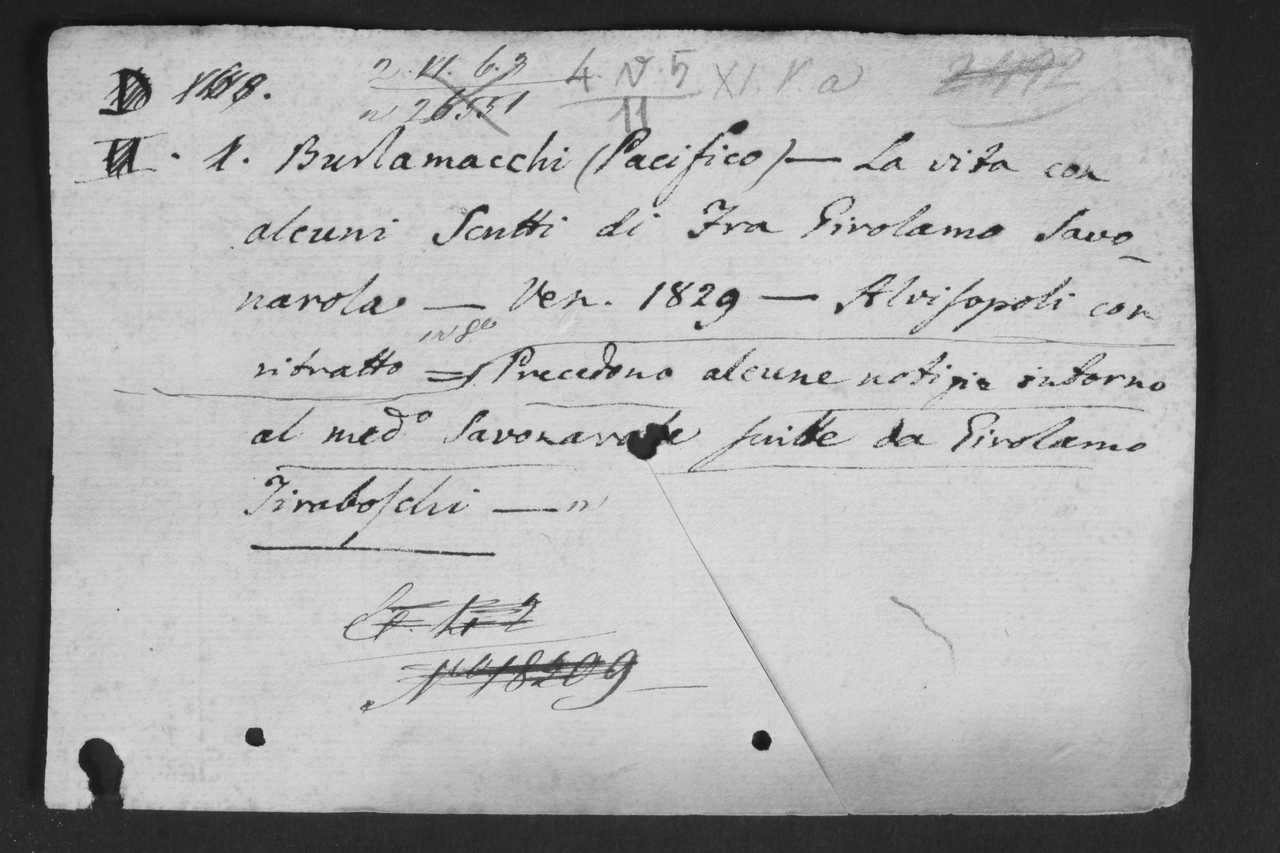 2. VI. 6. 3 4. V. 5 XI. V. a
n 26551 11
1. Burlamacchi (Pacifico) — La vita con
alcuni Scritti di Fra Girolamo Savo
narola — Ven. 1829 — Alvisopoli con
in 8°
ritratto = Precedono alcune notizie intorno
al med° Savonarola scritte da Girolamo
Tiraboschi —
N° 18209